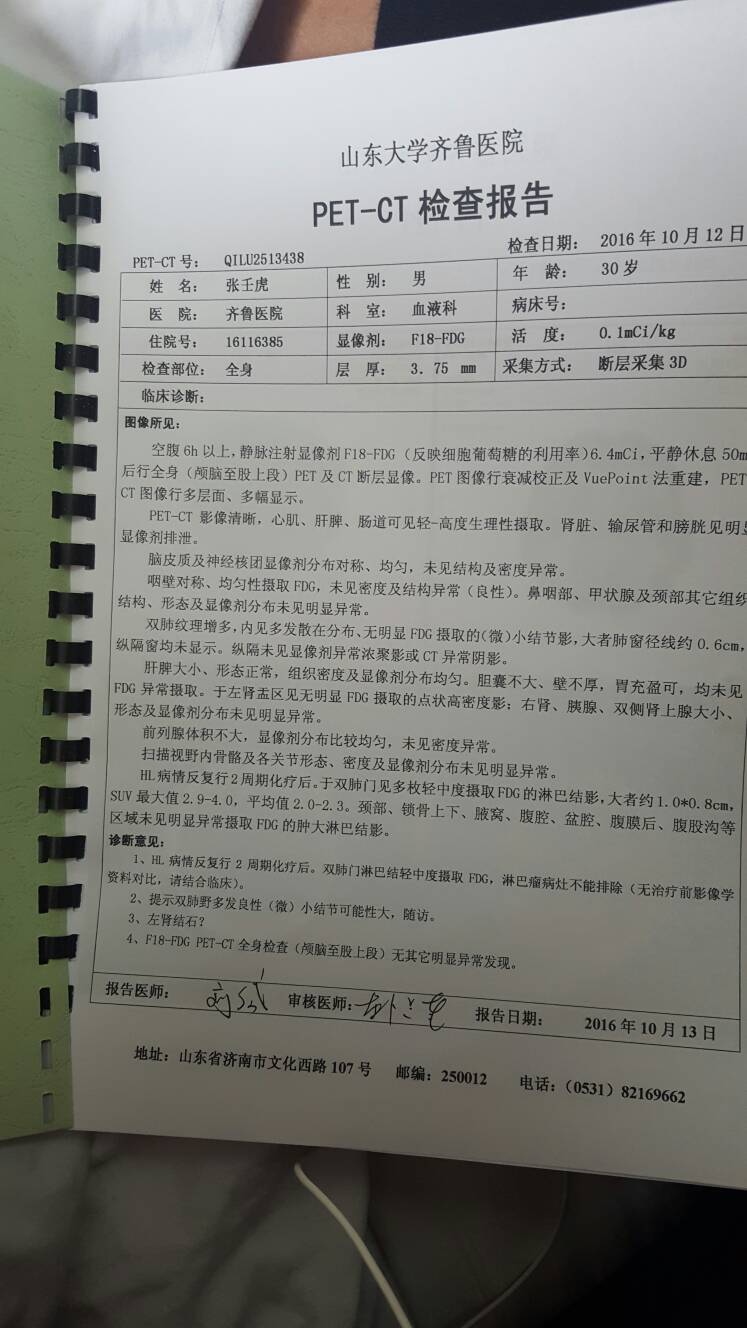 山东大学齐鲁医院
PET-CT 检查报告
PET-CT 号： QILU2513438 检查日期： 2016 年 10 月 12 日
姓 名： 张壬虎 性 别： 男 年 龄： 30 岁
医 院： 齐鲁医院 科 室： 血液科 病床号：
住院号： 16116385 显像剂： F18-FDG 活 度： 0.1mCi/kg
检查部位： 全身 层 厚： 3.75 mm 采集方式： 断层采集 3D
临床诊断：
图像所见：
空腹 6h 以上，静脉注射显像剂 F18-FDG（反映细胞葡萄糖的利用率）6.4mCi，平静休息 50m
后行全身（颅脑至股上段）PET 及 CT 断层显像。PET 图像行衰减校正及 VuePoint 法重建，PET
CT 图像行多层面、多幅显示。
PET-CT 影像清晰，心肌、肝脾、肠道可见轻-高度生理性摄取。肾脏、输尿管和膀胱见明显
显像剂排泄。
脑皮质及神经核团显像剂分布对称、均匀，未见结构及密度异常。
咽壁对称、均匀性摄取 FDG，未见密度及结构异常（良性）。鼻咽部、甲状腺及颈部其它组织
结构、形态及显像剂分布未见明显异常。
双肺纹理增多，内见多发散在分布、无明显 FDG 摄取的（微）小结节影，大者肺窗径线约 0.6cm，
纵隔窗均未显示。纵隔未见显像剂异常浓聚影或 CT 异常阴影。
肝脾大小、形态正常，组织密度及显像剂分布均匀。胆囊不大、壁不厚，胃充盈可，均未见
FDG 异常摄取。于左肾盂区见无明显 FDG 摄取的点状高密度影；右肾、胰腺、双侧肾上腺大小、
形态及显像剂分布未见明显异常。
前列腺体积不大，显像剂分布比较均匀，未见密度异常。
扫描视野内骨骼及各关节形态、密度及显像剂分布未见明显异常。
HL 病情反复行 2 周期化疗后。于双肺门见多枚轻中度摄取 FDG 的淋巴结影，大者约 1.0*0.8cm，
SUV 最大值 2.9-4.0，平均值 2.0-2.3。颈部、锁骨上下、腋窝、腹腔、盆腔、腹膜后、腹股沟等
区域未见明显异常摄取 FDG 的肿大淋巴结影。
诊断意见：
1、HL 病情反复行 2 周期化疗后。双肺门淋巴结轻中度摄取 FDG，淋巴瘤病灶不能排除（无治疗前影像学
资料对比，请结合临床）。
2、提示双肺野多发良性（微）小结节可能性大，随访。
3、左肾结石？
4、F18-FDG PET-CT 全身检查（颅脑至股上段）无其它明显异常发现。
报告医师： 审核医师： 报告日期： 2016 年 10 月 13 日
地址：山东省济南市文化西路 107 号 邮编：250012 电话：（0531）82169662